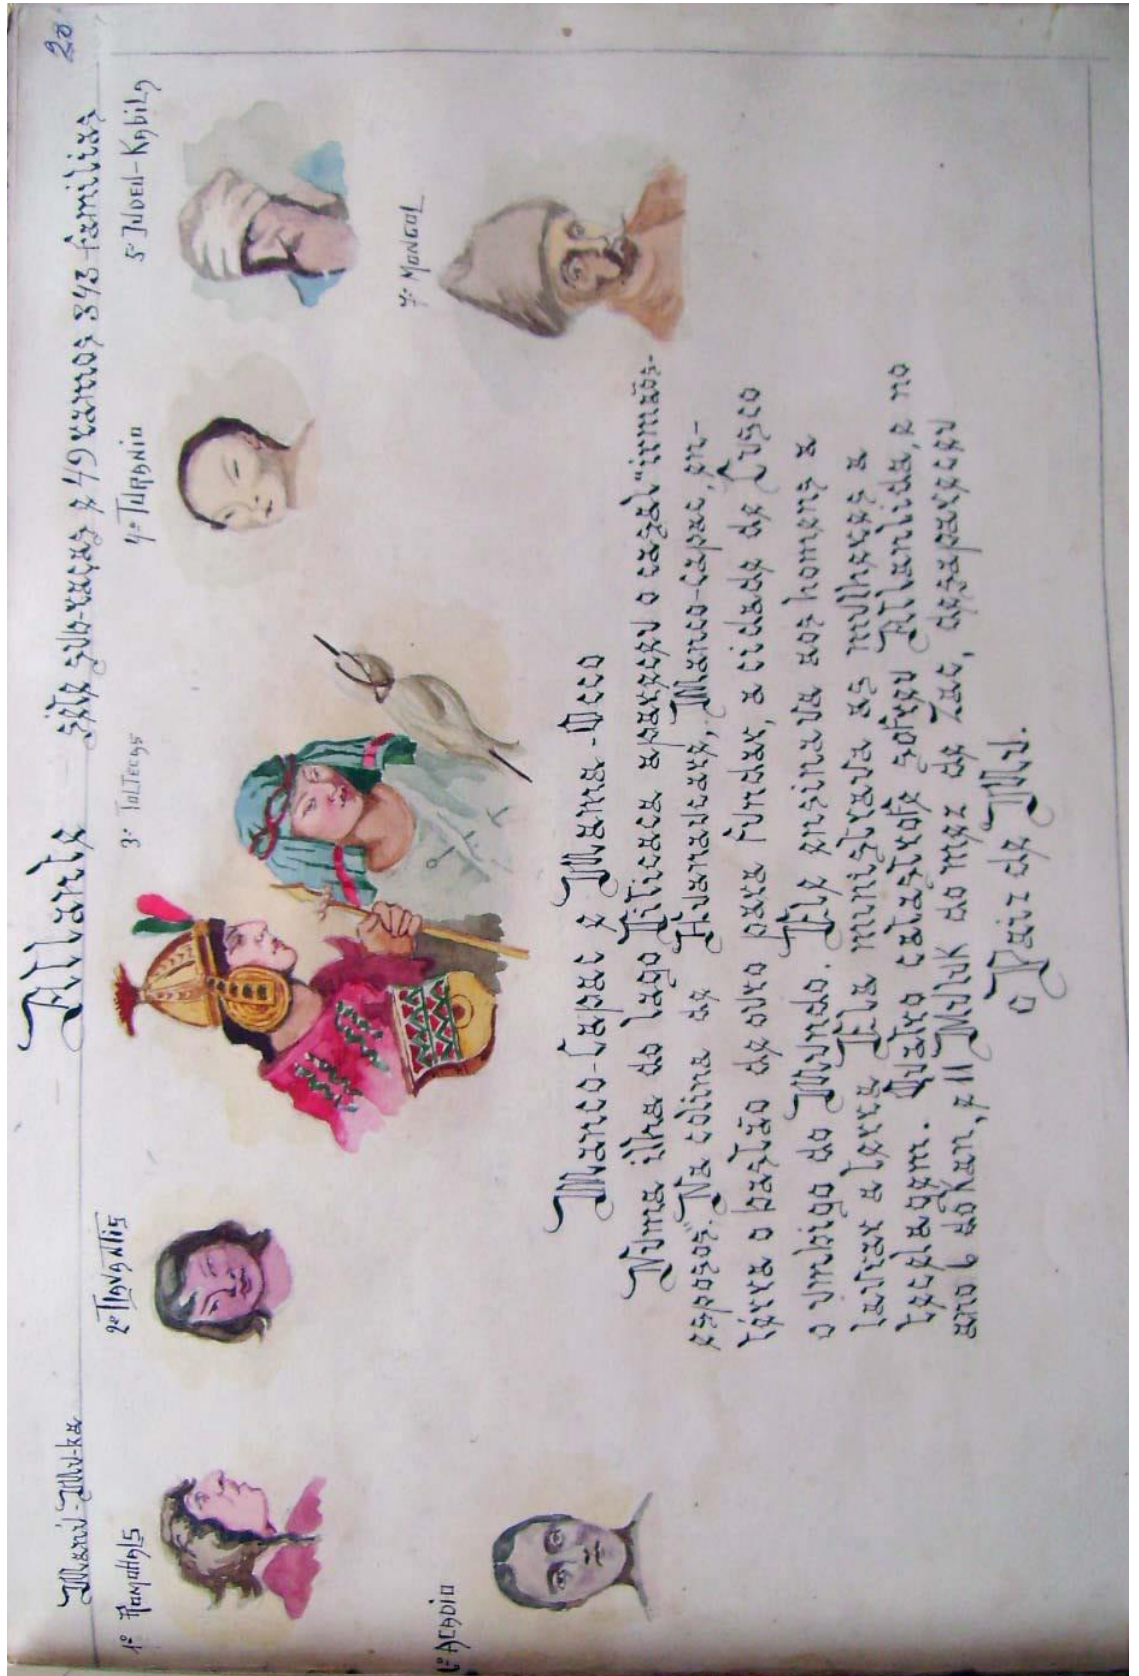 Manú-Mu-ka
Atlante
séte sub-raças e 49 ramos 343 familias
20
1º Ramohals
2º Tlavatlis
3º Toltecas
4º Turanio
5º Judeu-Kabila
6º Acadio
7º Mongol
Manco-Capac e Mama-Occo
Numa ilha do lago Titicaca apareceu o casal "irmãos-
esposos". Na colina de Huanaucare, Manco-Capac, en-
térra o bastão de ouro para fundar, a cidade de Cusco
o umbigo do Mundo. Ele ensinava aos homens a
lavrar a terra Ela munistrava as mulheres a
teçlagem. Quatro catastrofe sofreu Atlantida, e no
ano 6 dokan, e 11 Muluk do mez de Zac, desapareceu
o Paiz de Mu.